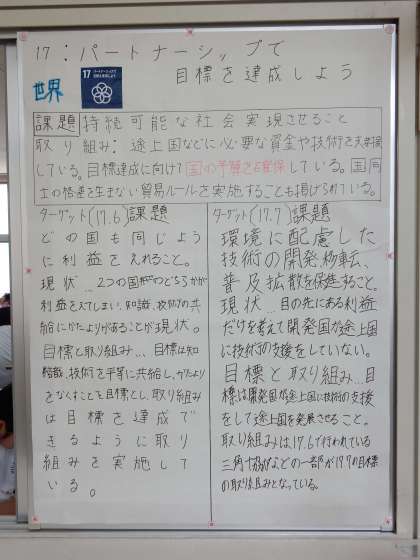 17：パートナーシップで
目標を達成しよう
世界
17 パートナーシップで
目標を達成しよう
課題 持続可能な社会実現させること
取り組み：途上国などに必要な資金や技術を支援
している。目標達成に向けて国の予算を確保している。国同
士の格差を生まない貿易ルールを実施することも掲げられている。
ターゲット(17.6)課題
どの国も同じよう
に利益をえれること。
現状…2つの国がのどちらかが
利益を入てしまい、知識、技術の共
給にかたよりがあることが現状。
目標と取り組み…目標は知
識、技術を平等に共給し、かたより
をなくすことを目標とし、取り組み
は目標を達成で
きるように取り
組みを実施して
いる。
ターゲット(17.7)課題
環境に配慮した
技術の開発、移転、
普及拡散を促進すること。
現状…目の先にある利益
だけを考えて開発国が途上国
に技術の支援をしていない。
目標と取り組み…目
標は開発国が途上国に技術の支援
をして途上国を発展させること。
取り組みは17.6で行われている
三角協力などの一部が17.7の目標
の取り組みとなっている。